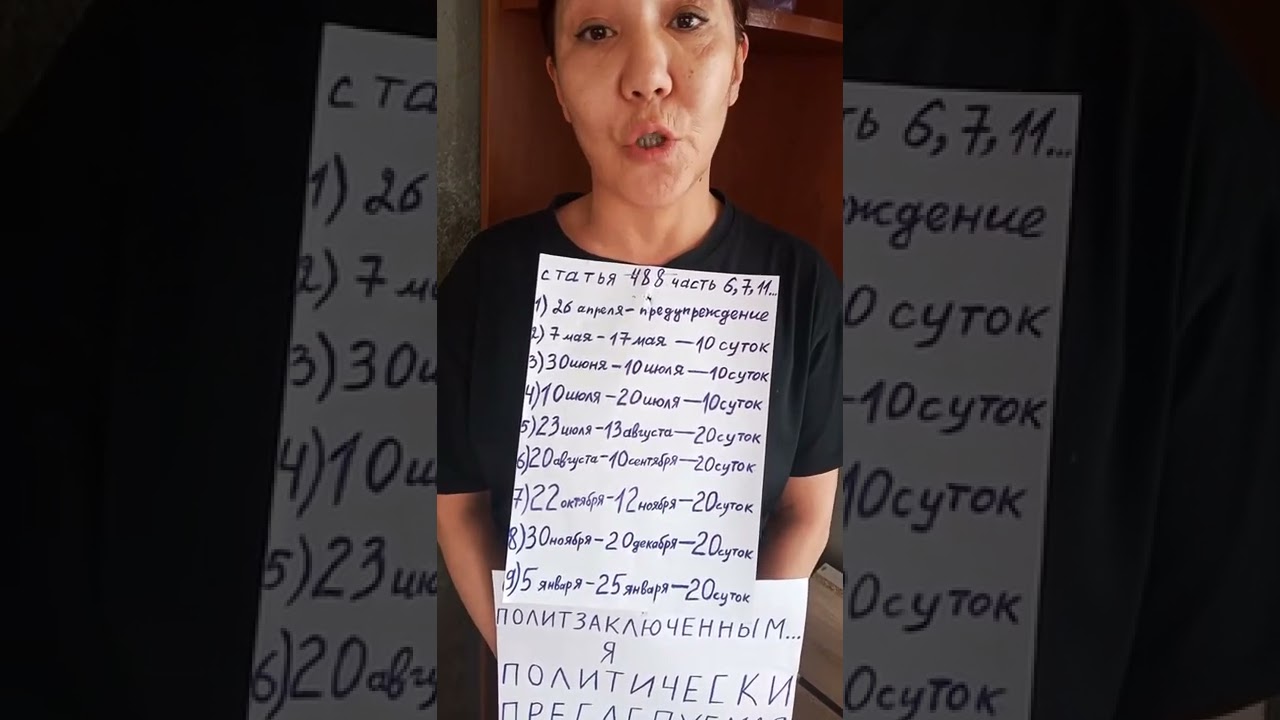 статья 488 часть 6,7,11...
1) 26 апреля – предупреждение
2) 7 мая – 17 мая – 10 суток
3) 30 июня – 10 июля – 10 суток
4) 10 июля – 20 июля – 10 суток
5) 23 июля – 13 августа – 20 суток
6) 20 августа – 10 сентября – 20 суток
7) 22 октября – 12 ноября – 20 суток
8) 30 ноября – 20 декабря – 20 суток
9) 5 января – 25 января – 20 суток
ПОЛИТЗАКЛЮЧЕННЫМ...
Я
ПОЛИТИЧЕСКИ